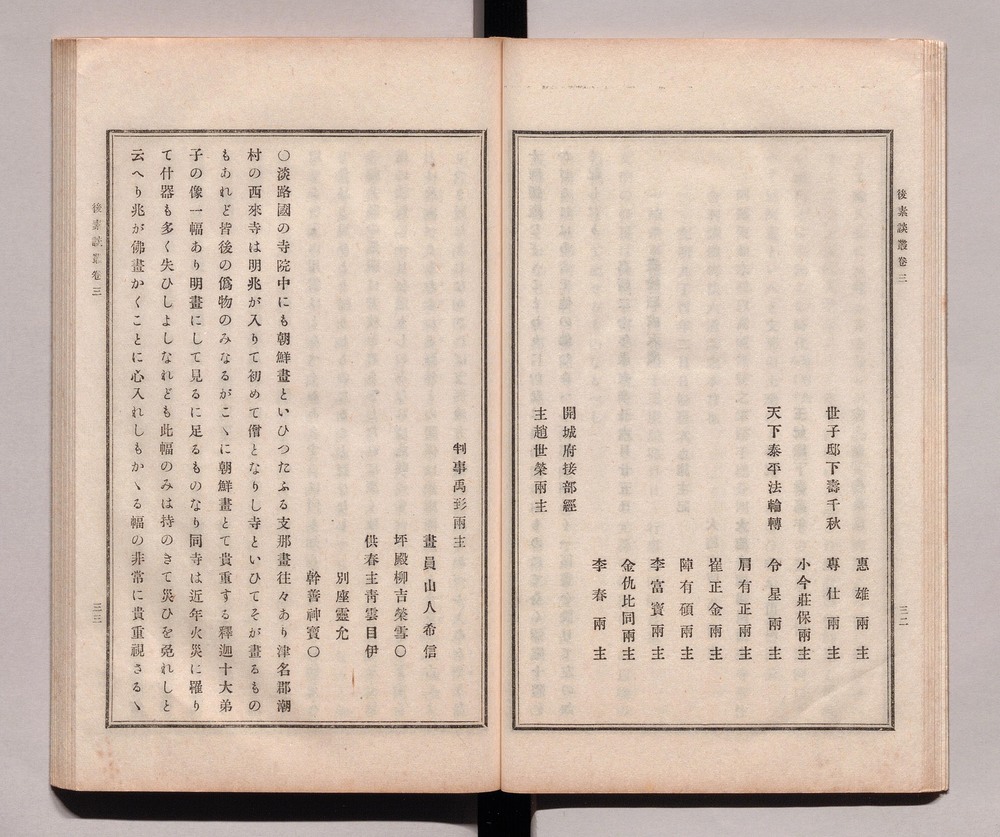 後素談叢卷三
三二
惠雄兩主
世子邸下壽千秋 專仕兩主
小今莊保兩主
天下泰平法輪轉 令星兩主
肩有正兩主
崔正金兩主
陣有碩兩主
李富寶兩主
金仇比同兩主
李春兩主
開城府接部經
主趙世榮兩主
判事禹彭兩主
畫員山人希信
坪殿柳吉榮雪〇
供春主靑雲目伊
別座靈允
幹善神寶〇
〇淡路國の寺院中にも朝鮮畫といひつたふる支那畫往々あり津名郡潮
村の西來寺は明兆が入りて初めて僧となりし寺といひてそが畫るもの
もあれど皆後の僞物のみなるがこゝに朝鮮畫とて貴重する釋迦十大弟
子の像一幅あり明畫にして見るに足るものなり同寺は近年火災に罹り
て什器も多く失ひしよしなれども此幅のみは持のきて災ひを免れしと
云へり兆が佛畫かくことに心入れしもかゝる幅の非常に貴重視さるゝ
後素談叢卷三
三三